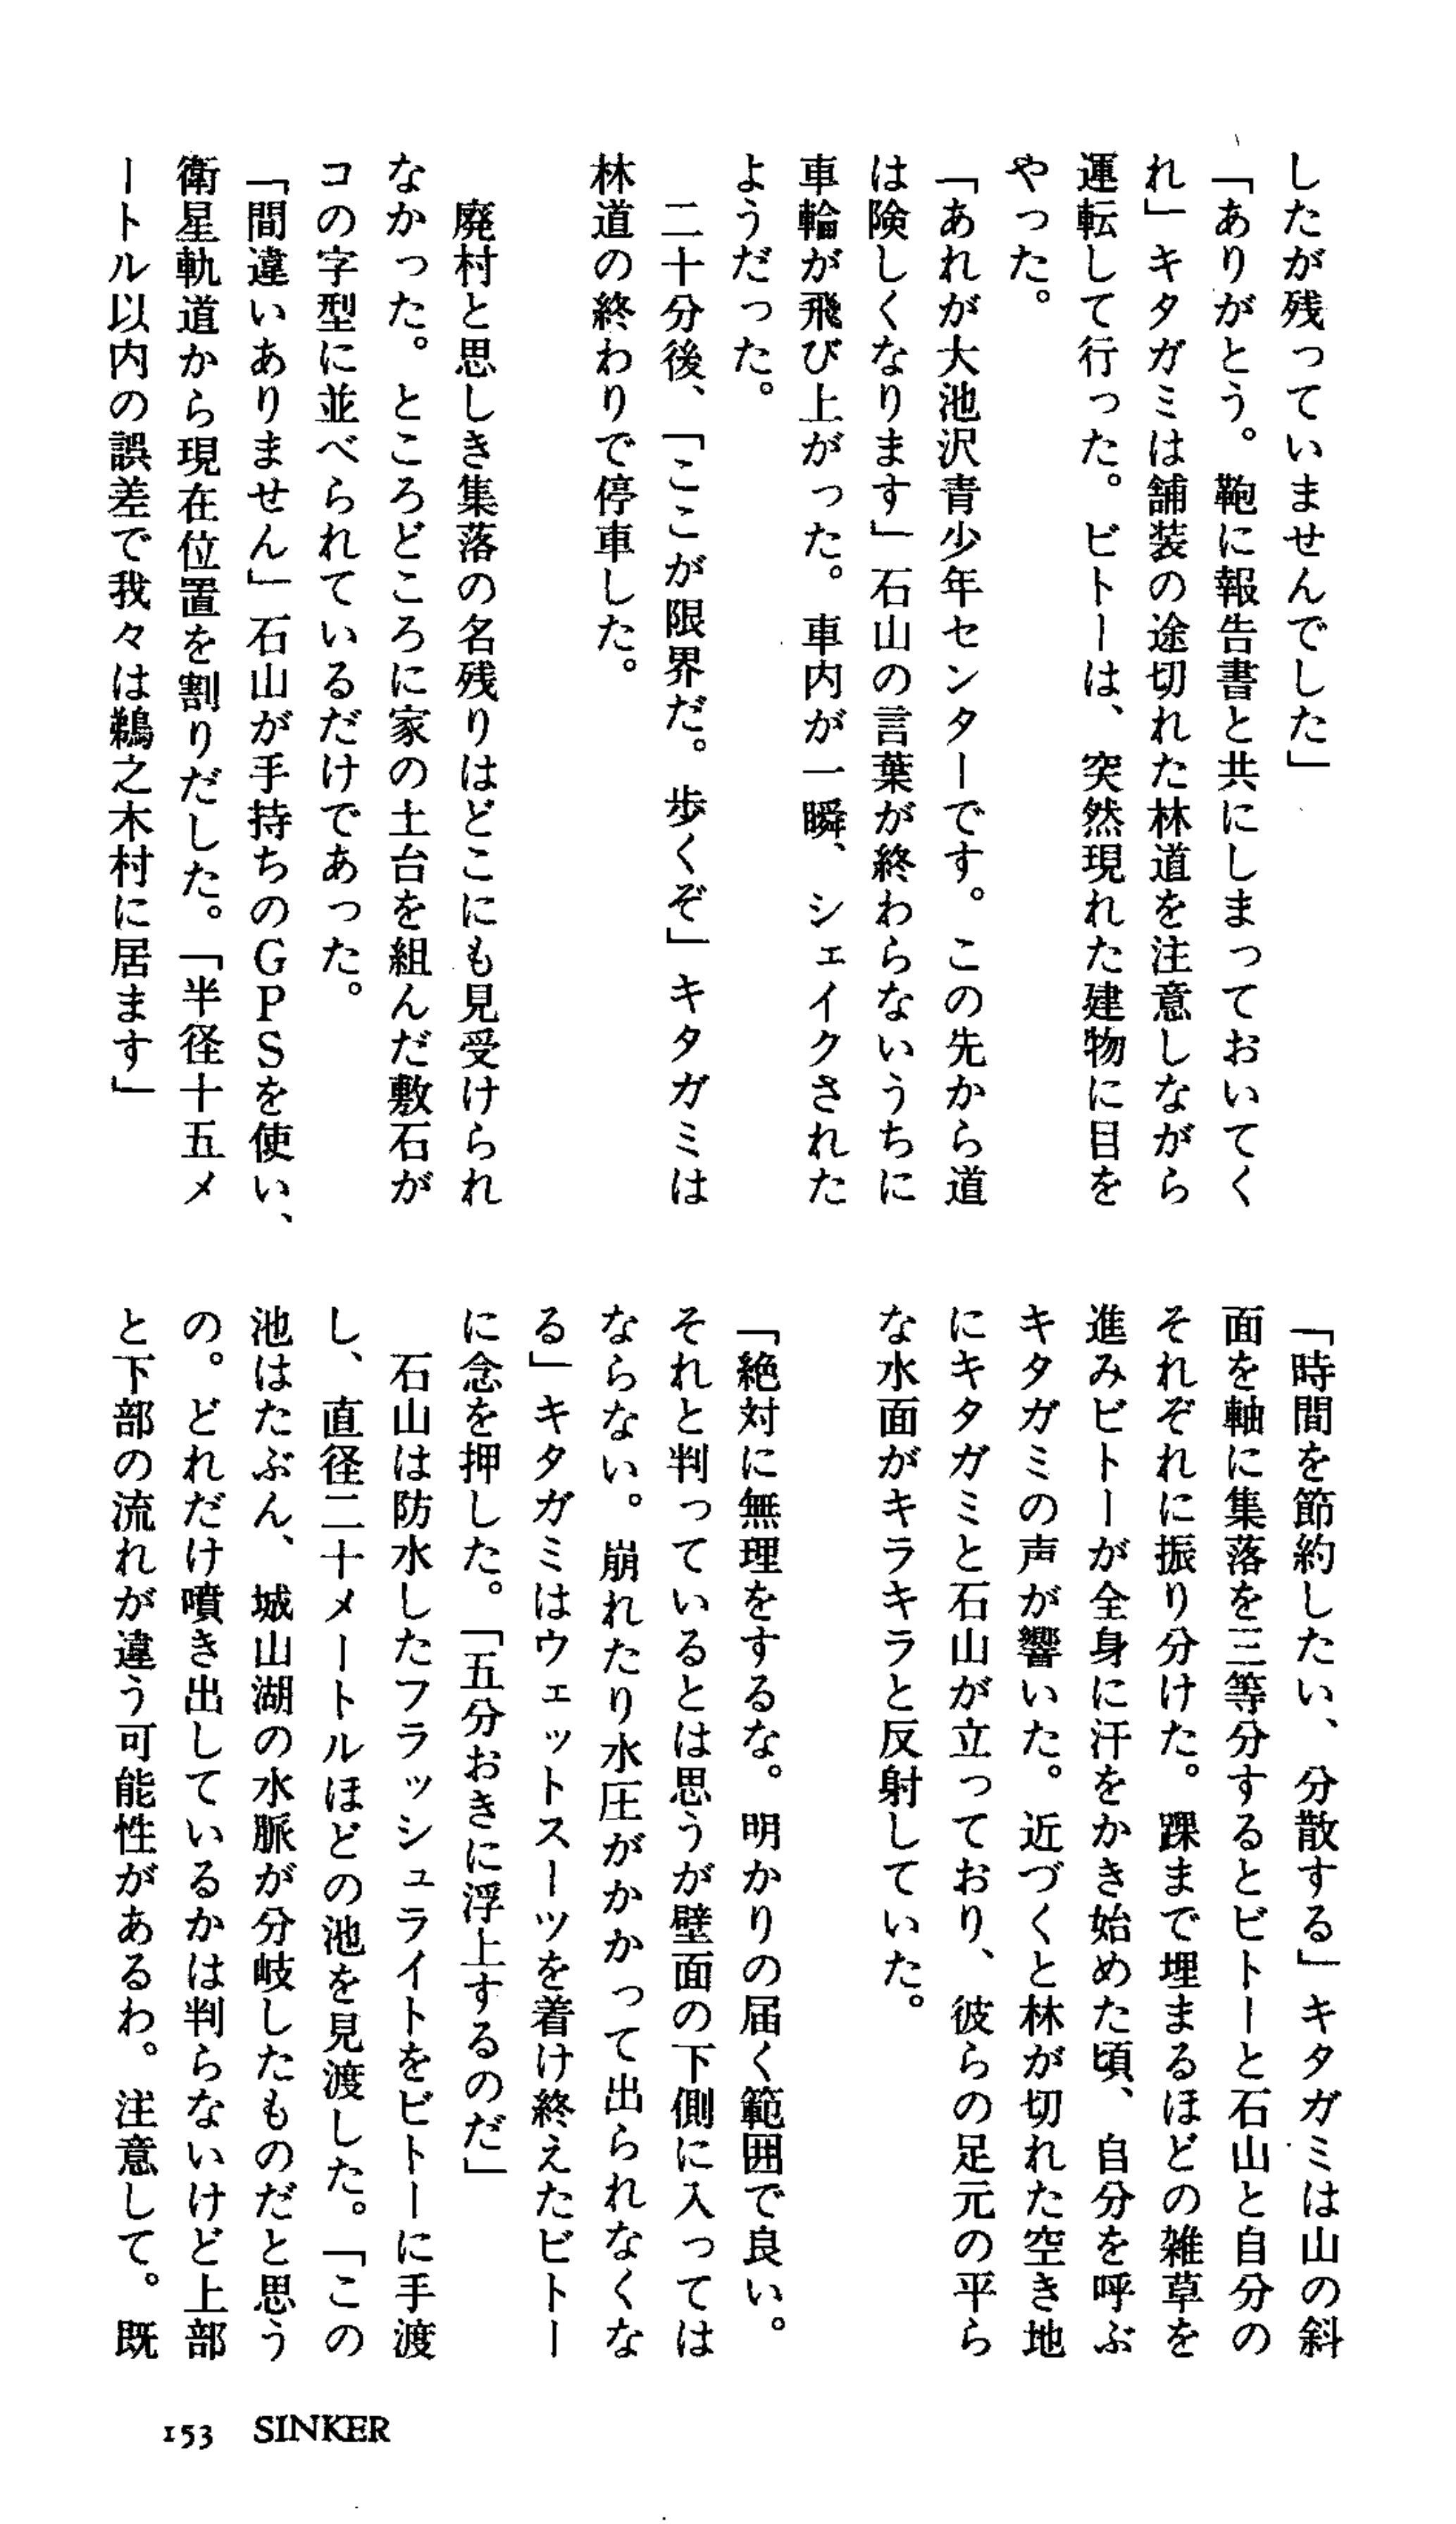 したが残っていませんでした」
「ありがとう。鞄に報告書と共にしまっておいてく
れ」キタガミは舗装の途切れた林道を注意しながら
運転して行った。ビトーは、突然現れた建物に目を
やった。
「あれが大池沢青少年センターです。この先から道
は険しくなります」石山の言葉が終わらないうちに
車輪が飛び上がった。車内が一瞬、シェイクされた
ようだった。
二十分後、「ここが限界だ。歩くぞ」キタガミは
林道の終わりで停車した。
廃村と思しき集落の名残りはどこにも見受けられ
なかった。ところどころに家の土台を組んだ敷石が
コの字型に並べられているだけであった。
「間違いありません」石山が手持ちのGPSを使い、
衛星軌道から現在位置を割りだした。「半径十五メ
ートル以内の誤差で我々は鵜之木村に居ます」
「時間を節約したい、分散する」キタガミは山の斜
面を軸に集落を三等分するとビトーと石山と自分の
それぞれに振り分けた。踝まで埋まるほどの雑草を
進みビトーが全身に汗をかき始めた頃、自分を呼ぶ
キタガミの声が響いた。近づくと林が切れた空き地
にキタガミと石山が立っており、彼らの足元の平ら
な水面がキラキラと反射していた。
「絶対に無理をするな。明かりの届く範囲で良い。
それと判っているとは思うが壁面の下側に入っては
ならない。崩れたり水圧がかかって出られなくな
る」キタガミはウェットスーツを着け終えたビトー
に念を押した。「五分おきに浮上するのだ」
石山は防水したフラッシュライトをビトーに手渡
し、直径二十メートルほどの池を見渡した。「この
池はたぶん、城山湖の水脈が分岐したものだと思う
の。どれだけ噴き出しているかは判らないけど上部
と下部の流れが違う可能性があるわ。注意して。既
153 SINKER